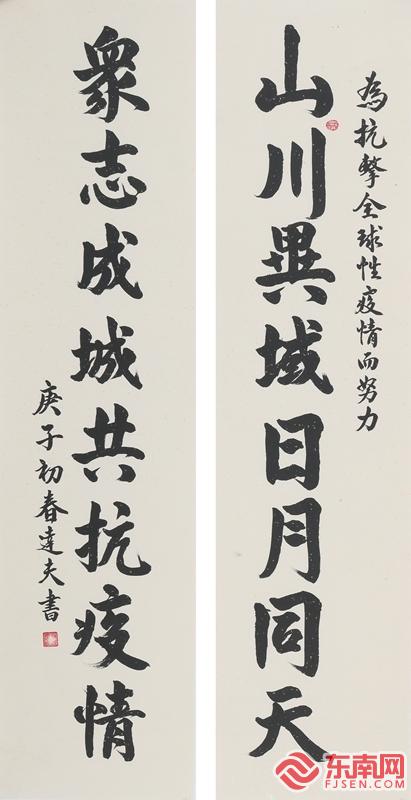 為抗擊全球性疫情而努力
山川異域日月同天
衆志成城共抗疫情
庚子初春達夫書
东南网
FJSEN.COM